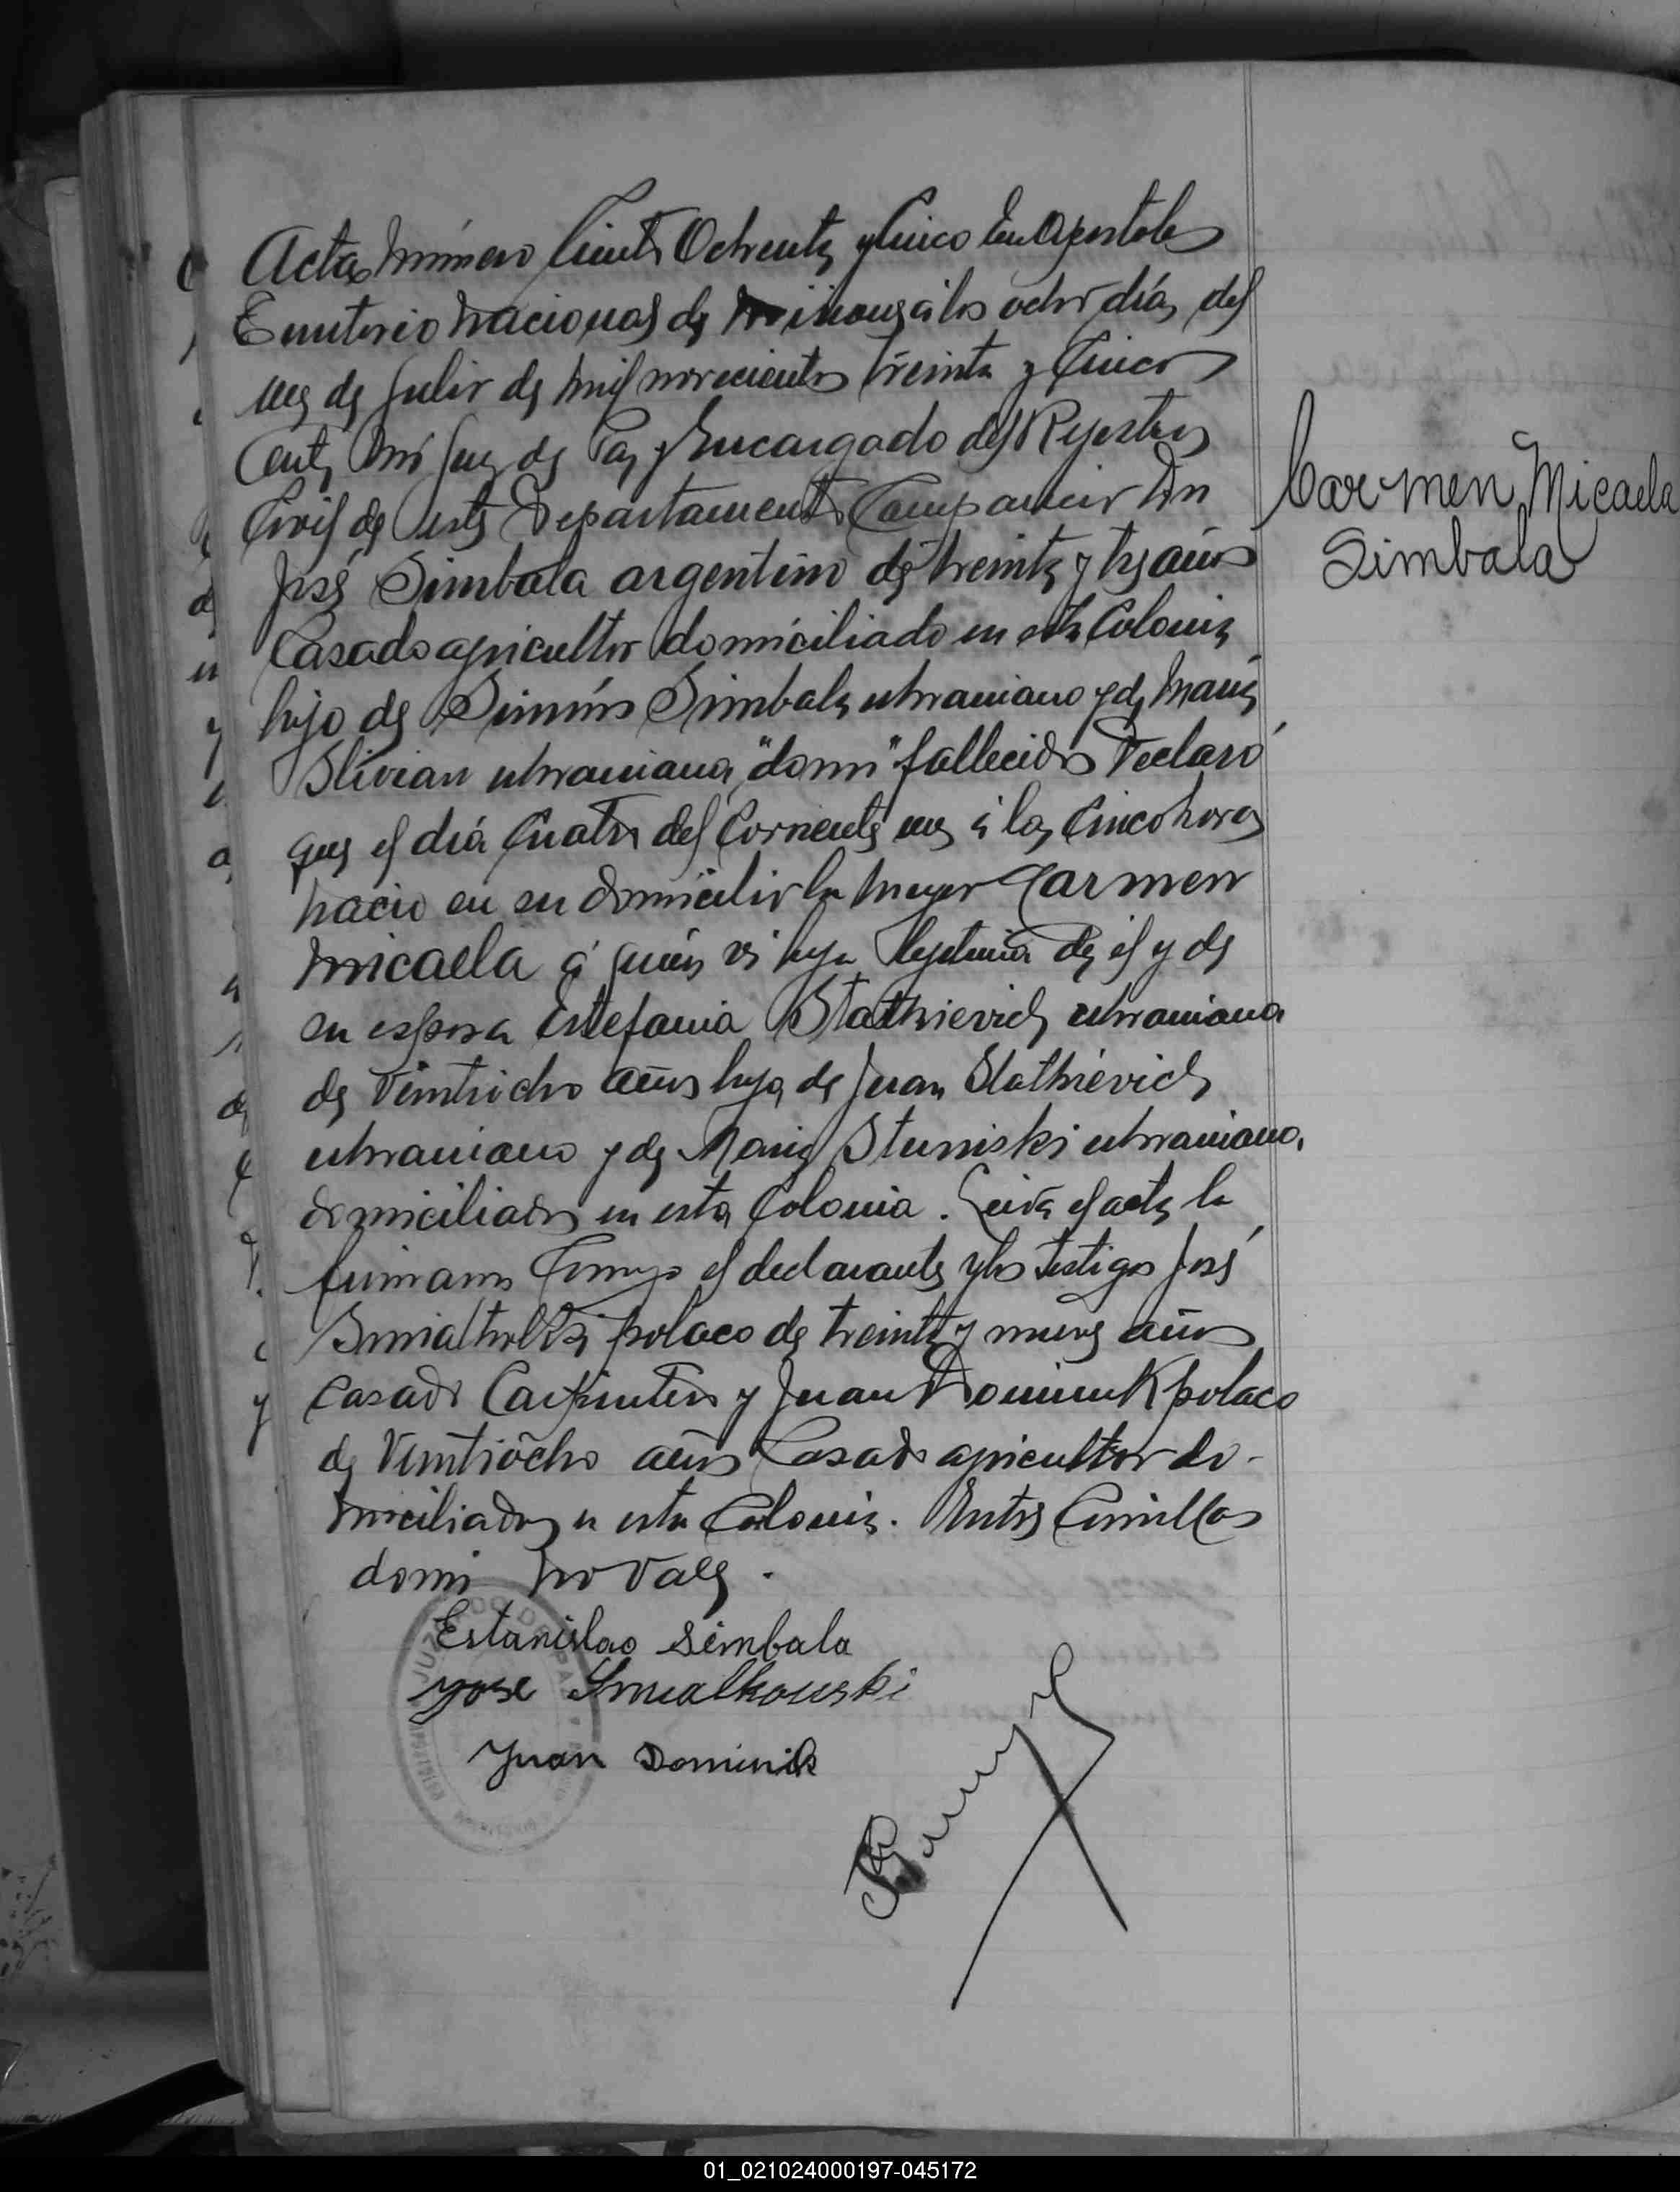 Acta número Ciento Ochenta y Cinco En Apostoles
Territorio Nacional de Misiones a los ocho días del
mes de Julio de mil novecientos treinta y Cinco
Ante Mí Juez de Paz y Encargado del Rejistro
Civil de este Departamento Comparecio Don
José Simbala argentino de treinta y tres años
Casado agricultor domiciliado en esta Colonia
hijo de Simón Simbala ukraniano y de María
Slivian ukraniana "domi" fallecidos Declaró
que el día Cuatro del Corriente mes a las Cinco horas
nacio en su domicilio la mujer Carmen
Micaela a quien es hija lejitima de el y de
su esposa Estefania Statkievich ukraniana
de Veintiocho años hija de Juan Statkievich
ukraniano y de Maria Sturniski ukraniana,
domiciliados en esta Colonia. Leida el acta la
firmaron Conmigo el declarante y los testigos José
Smialkolski polaco de treinta y nueve años
Casado Carpintero y Juan Dominik polaco
de Veintiocho años Casado agricultor do-
miciliados en esta Colonia. Entre Comillas
domi no vale.
Estanislao Simbala
Jose Smialkouski
Juan Dominik
Carmen Micaela
Simbala
JUZGADO DE PAZ
01_021024000197-045172